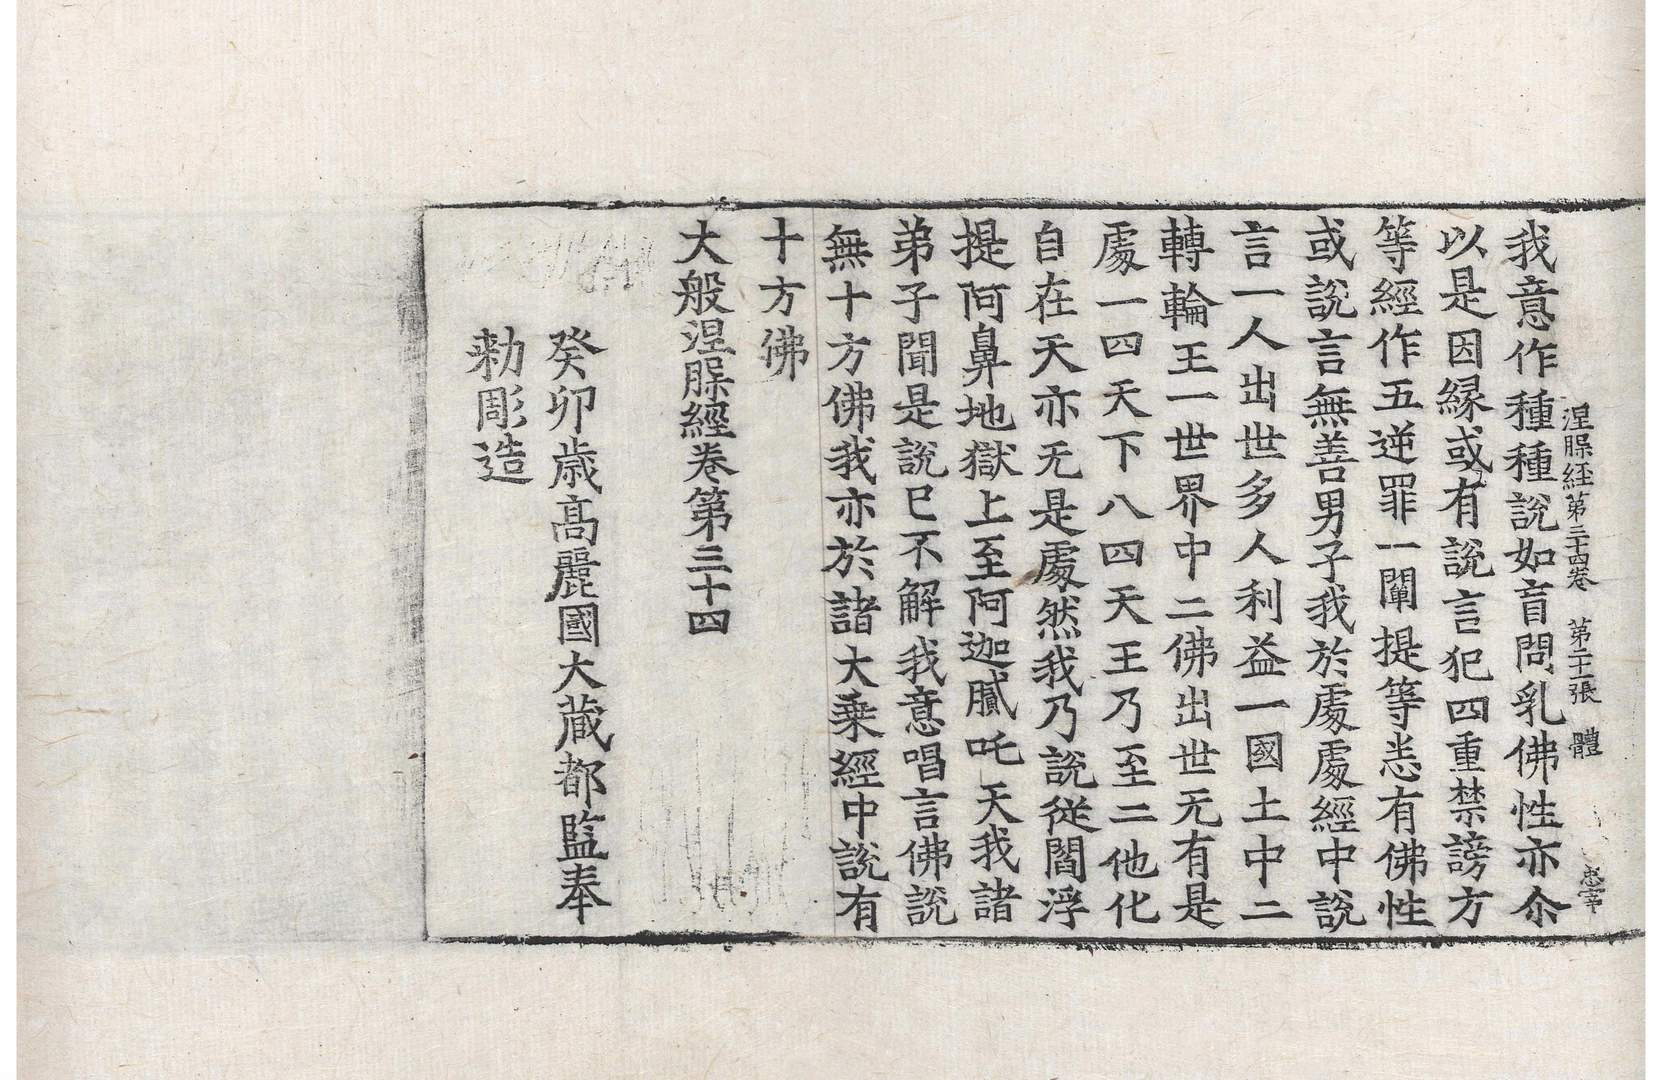 涅槃経第三十四卷　第二十張　體　忠宰
我意作種種說如盲問乳佛性亦尒
以是因縁或有說言犯四重禁謗方
等經作五逆罪一闡提等悉有佛性
或說言無善男子我於處處經中說
言一人出世多人利益一國土中二
轉輪王一世界中二佛出世无有是
處一四天下八四天王乃至二他化
自在天亦无是處然我乃說從閻浮
提阿鼻地獄上至阿迦膩吒天我諸
弟子聞是說已不解我意唱言佛說
無十方佛我亦於諸大乗經中說有
十方佛
大般涅槃經卷第三十四
癸卯歲高麗國大藏都監奉
勑彫造